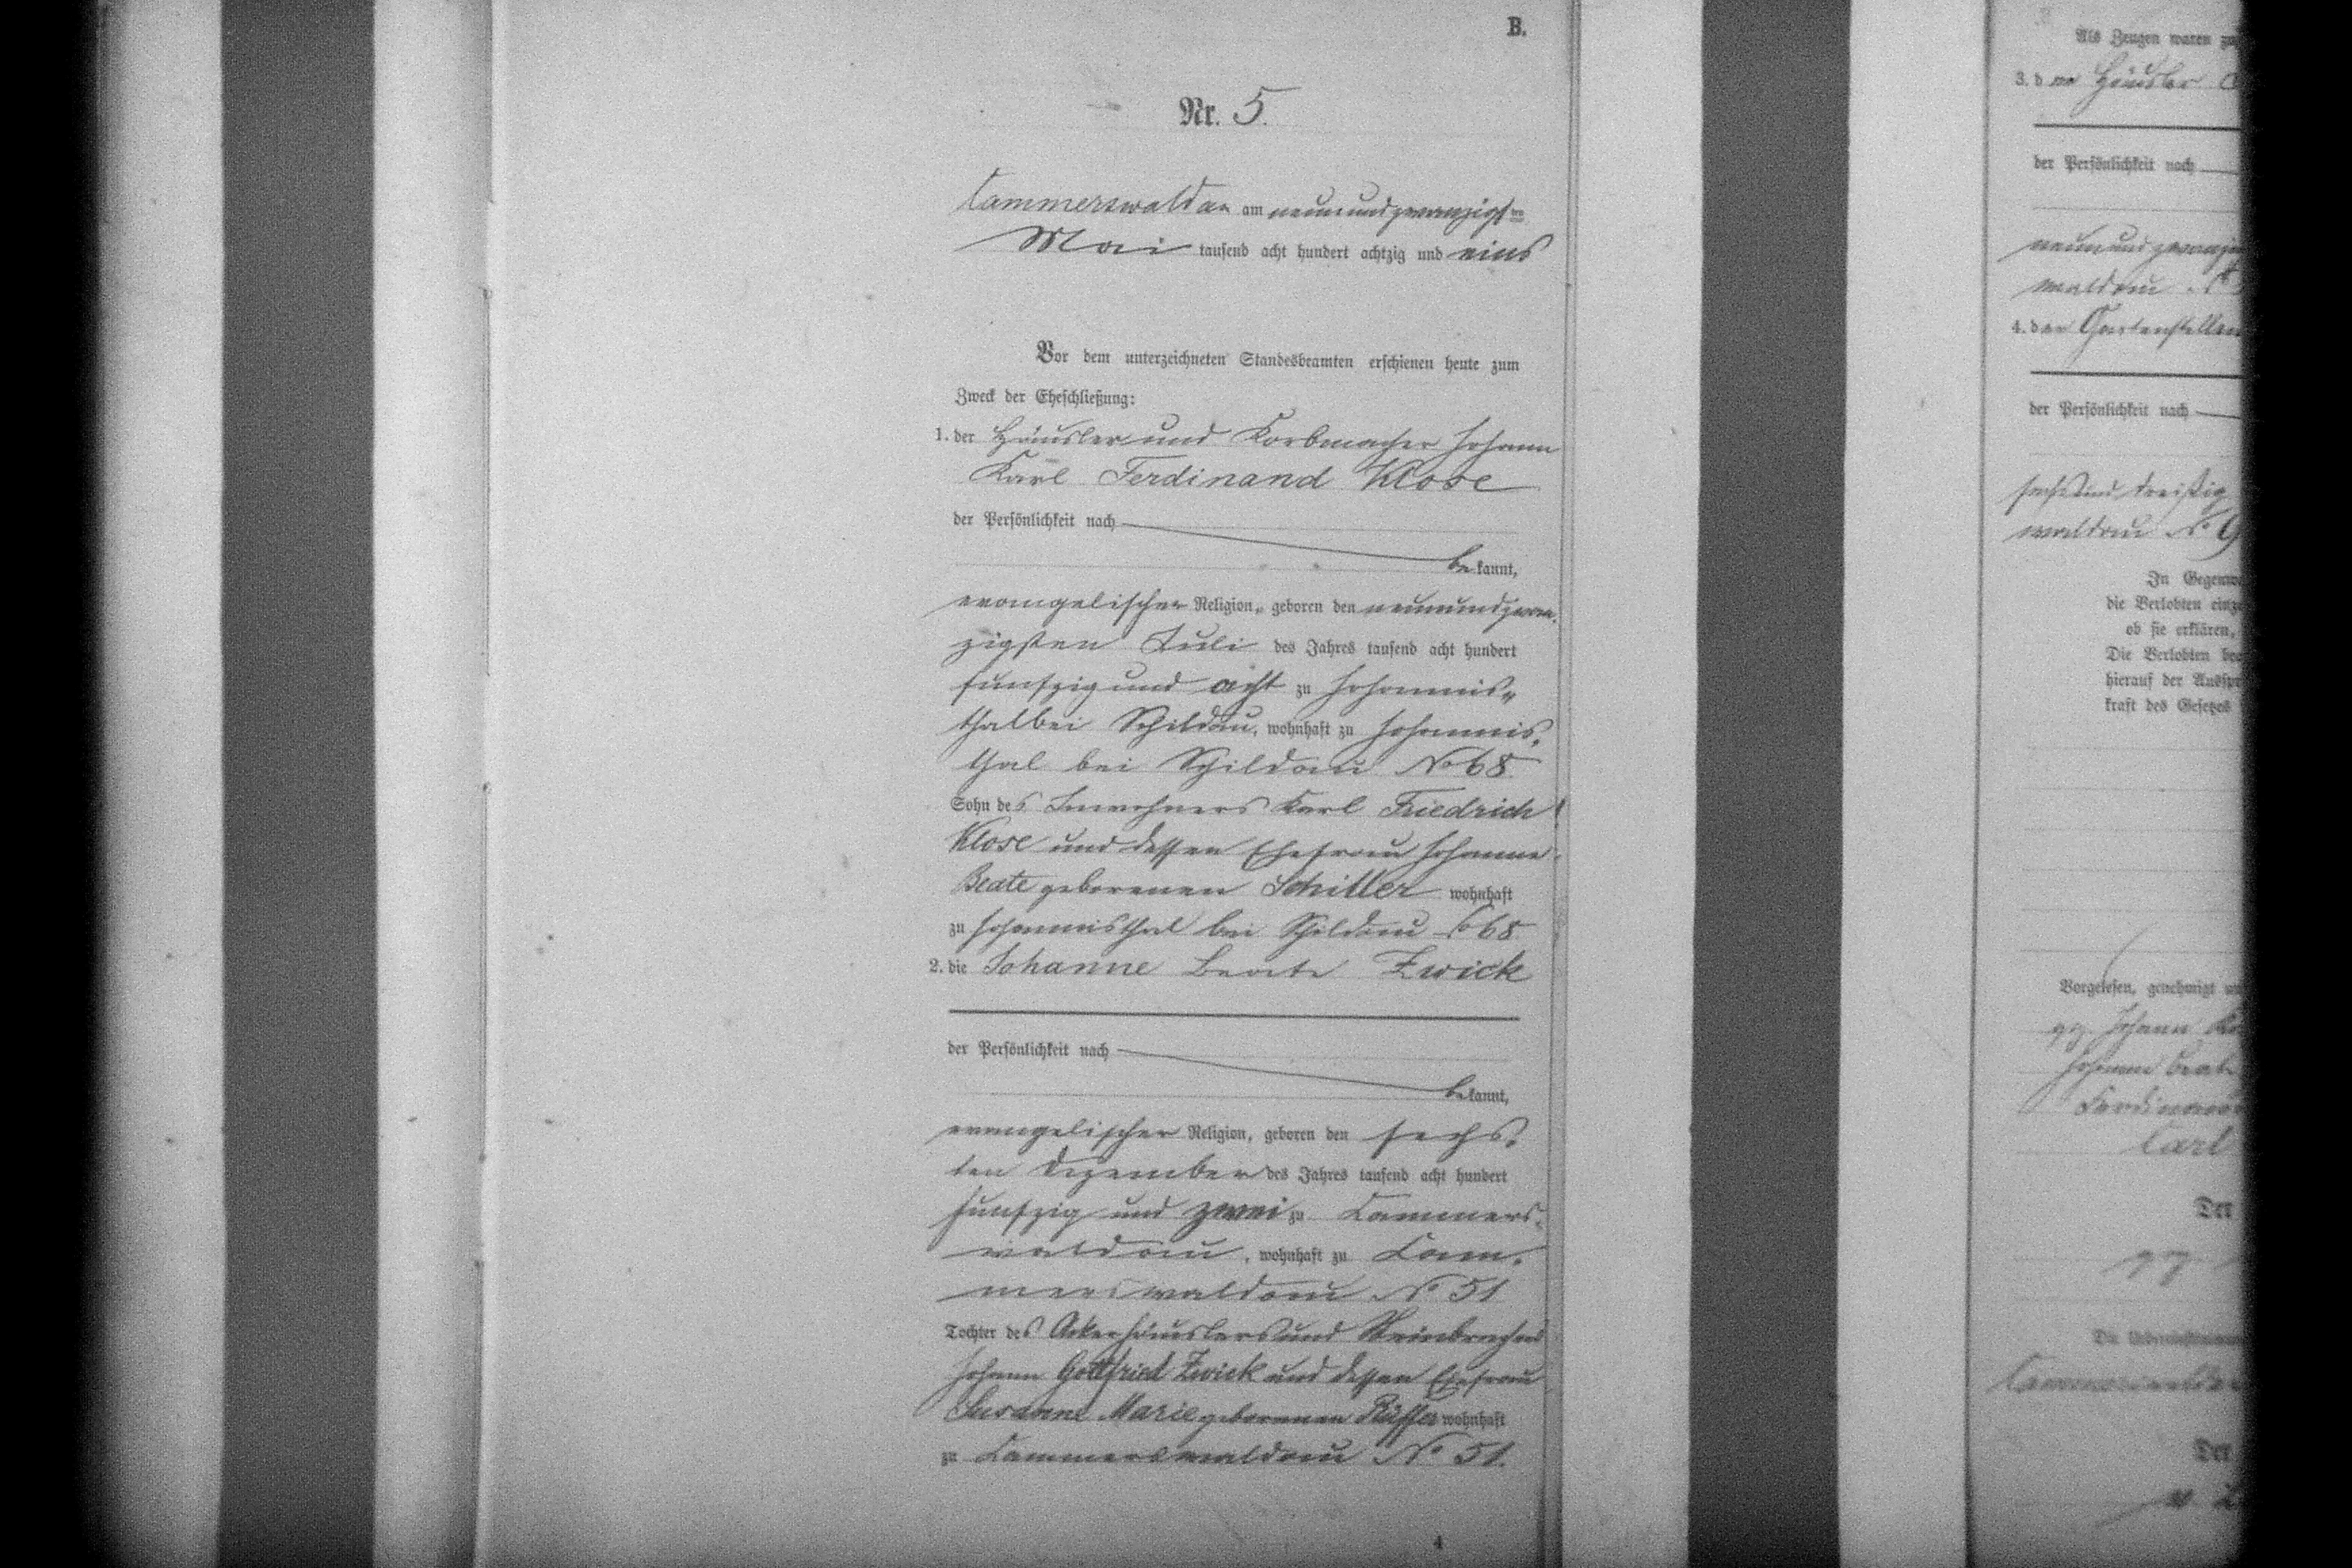 B.
Nr. 5.
Cammerswaldau am neunundzwanzigsten
Mai tausend acht hundert achtzig und eins
Vor dem unterzeichneten Standesbeamten erschienen heute zum
Zweck der Eheschließung:
1. der Häusler und Korbmacher Johann
Karl Ferdinand Klose
der Persönlichkeit nach
bekannt,
evangelischer Religion, geboren den neunundzwan-
zigsten Juli des Jahres tausend acht hundert
funfzig und acht zu Johannis-
thal bei Schildau, wohnhaft zu Johannis-
thal bei Schildau No 68
Sohn des Inwohners Karl Friedrich
Klose und dessen Ehefrau Johanne
Beate geborenen Schiller wohnhaft
zu Johannisthal bei Schildau 68
2. die Johanne Beate Zwick
der Persönlichkeit nach
bekannt,
evangelischer Religion, geboren den sechs-
ten Dezember des Jahres tausend acht hundert
funfzig und zwei zu Cammers-
waldau, wohnhaft zu Cam-
merswaldau No 51
Tochter des Ackerhäuslers und
Johann Gottfried Zwick und dessen Ehefrau
Susanne Marie geborenen Rüffer wohnhaft
zu Cammerswaldau No 51.
4
Als Zeugen waren
3. den Häusler
der Persönlichkeit nach
waldau No
4. den
der Persönlichkeit nach
sechsunddreißig
waldau No 9
In
die Verlobten
ob sie erklären,
Die Verlobten
hierauf der
kraft des Gesetzes
Vorgelesen, genehmigt
gz. Johann
Johanne Beate
Carl
Der
gz.
Der